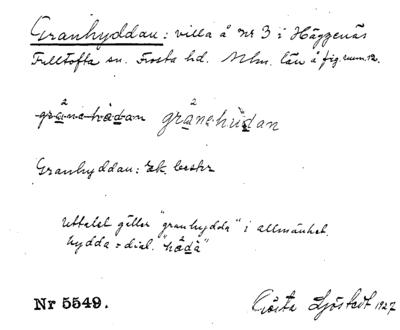 Granhyddan: villa å nr 3 i Häggenäs
Fulltofta sn. Frosta hd. Mlm. län å fig.rum.12.
gränahådan gränahüdan
Granhyddan: ek. bester
Uttalet gäller "granhydda" i allmänhet.
hydda = dial. "hådå"
Nr 5549. Gösta Sjöstedt 1927